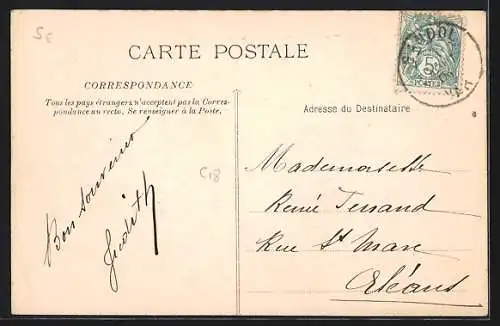 5€
CARTE POSTALE
CORRESPONDANCE
Tous les pays étrangers n'acceptent pas la Corres-
pondance au recto. Se renseigner à la Poste.
Bon souvenir
Judith
C18
Adresse du Destinataire
Mademoiselle
Renée
Rue St Marc
Orléans
BANDOL
VAR
5